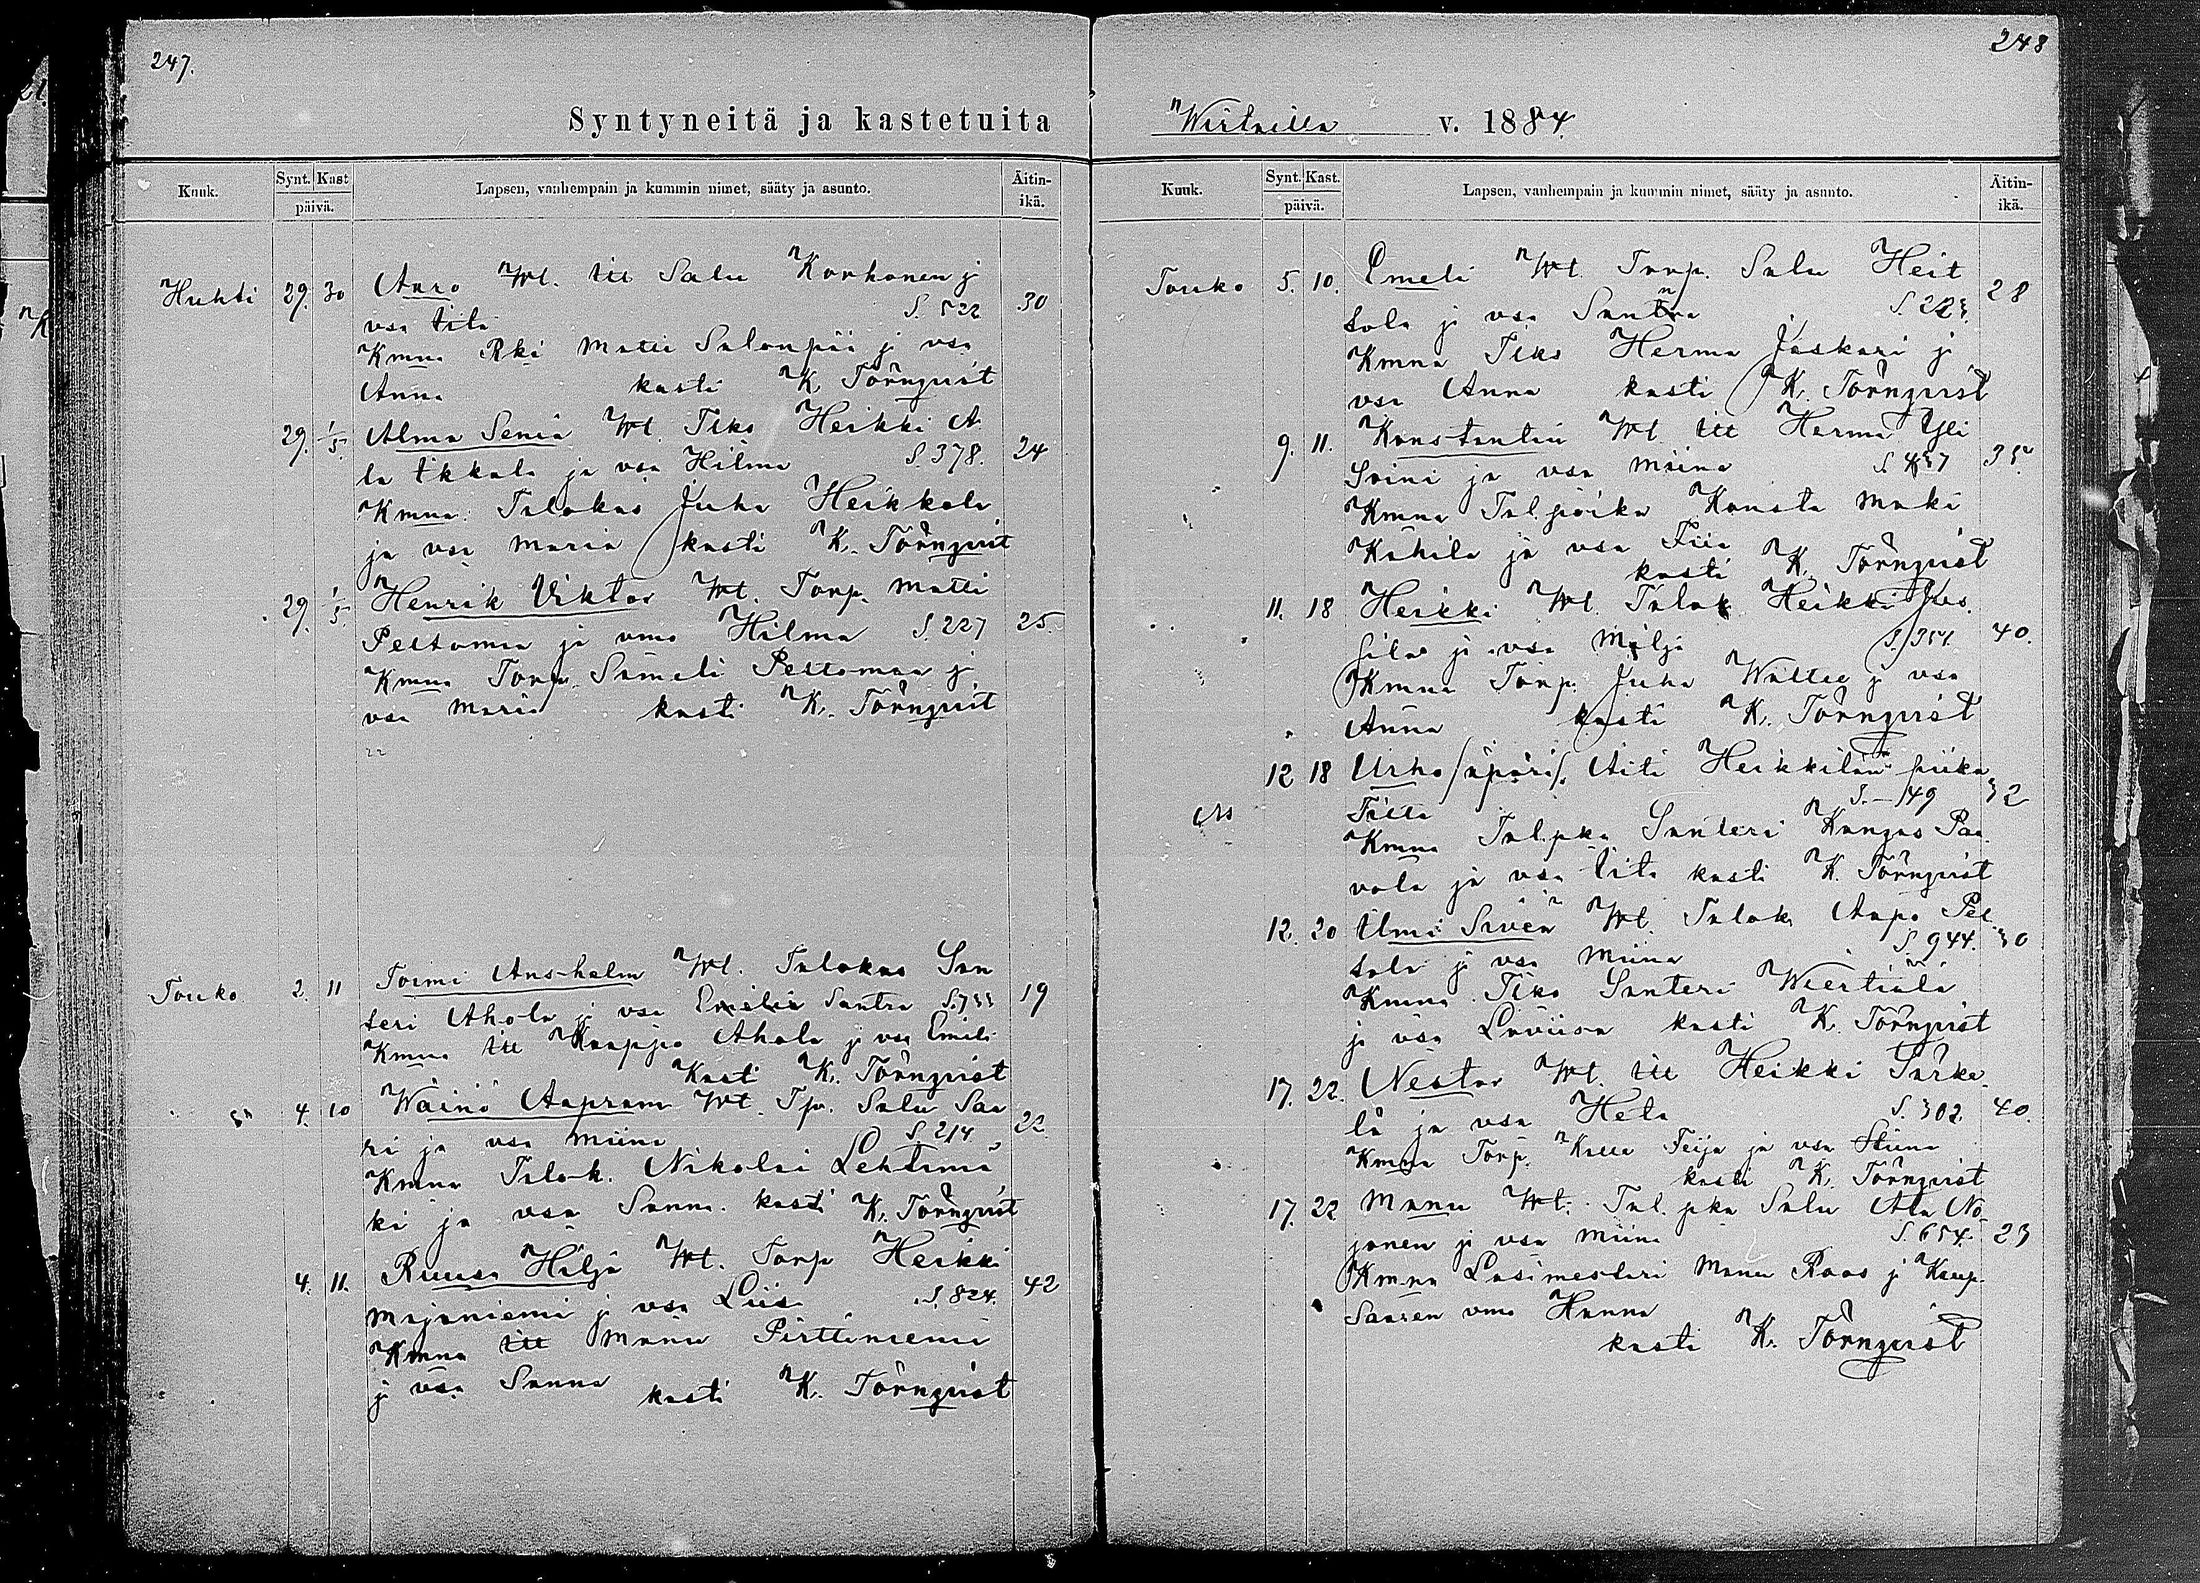 247.
Syntyneitä ja kastetuita
Kuuk. Synt. Kast päivä. Lapsen, vanhempain ja kummin nimet, sääty ja asunto. Äitin-ikä.
Huhti 29. 30 Aaro Wt. Itt Salu Korhonen j
vsa Tita S. 522 30
Kmna Rki Matti Salonpää j vsa
Anna kasti K. Törnqvist
29. 1/5. Alma Senia Wt. Tlko Heikki A
la Ikkala ja vsa Hilma S. 378. 24
Kmna: Talokas Juha Heikkola
ja vsa Maria kasti K. Törnqvist
29. 1/5. Henrik Viktor Wt. Torp. Matti
Peltomaa ja vmo Hilma S. 227 25.
Kmna Torp. Sameli Peltomaa j
vsa Maria kasti K. Törnqvist
Touko 2. 11 Toimi Anshelm Wt. Talokas San
teri Ahola j vsa Emilia Santra S. 733 19
Kmna Itt Kaappo Ahola j vsa Emili
Kasti K. Törnqvist
4. 10 Wäinö Aapram Wt. Tp. Salu Saa
ri ja vsa Miina S. 214 22.
Kmna Talok. Nikolai Lehtimä
ki ja vsa Sanna. kasti K. Törnqvist
4. 11. Ruusa Hilja Wt. Torp Heikki
Majaniemi j vsa Liisa S. 824. 42
Kmna Itt Manu Pirttiniemi
j vsa Sanna kasti K. Törnqvist
248
Wirtailla v. 1884
Kuuk. Synt. Kast. päivä. Lapsen, vanhempain ja kummin nimet, sääty ja asunto. Äitin-ikä.
Touko 5. 10. Emeli Wt Torp. Salu Heit
tola j vsa Santra S. 223. 28
Kmna Tlko Herma Jaskari j
vsa Anna kasti K. Törnqvist
9. 11. Konstantin Wt Itt Herma Yli
Soini ja vsa Miina S. 437 35.
Kmna Tal.poika Kansta Mäki
Kähilä ja vsa Fiia
kasti K. Törnqvist
11. 18 Heikki Wt. Talok. Heikki Kes
silä j vsa Milja S. 354. 40.
Kmna Torp. Juha Waltee j vsa
Anna kasti K. Törnqvist
12 18 Urho /äpäri/. Äiti Heikkilän piika
Tilta S. 149 32
Kmna Tal.pka Santeri Kangas Paa
vola ja vsa Tita kasti K. Törnqvist
12. 20 Ilmi Siven Wt. Talok Aapo Pel
tola j vsa Miina S. 944. 30
Kmna Tlko Santeri Wiertiälä
j vsa Loviisa kasti K. Törnqvist
17. 22. Nestor Wt. Itt Heikki Särke
lä ja vsa Heta S. 302. 40.
Kmna Torp. Kalle Teija ja vsa Stiina
kasti K. Törnqvist
17. 22 Manu Wt. Tal.pka Salu Ala No
jonen j vsa Miina S. 654. 23
Kmna Lasimestari Manu Roos j Kaup.
Saaren vmo Hanna
kasti K. Törnqvist